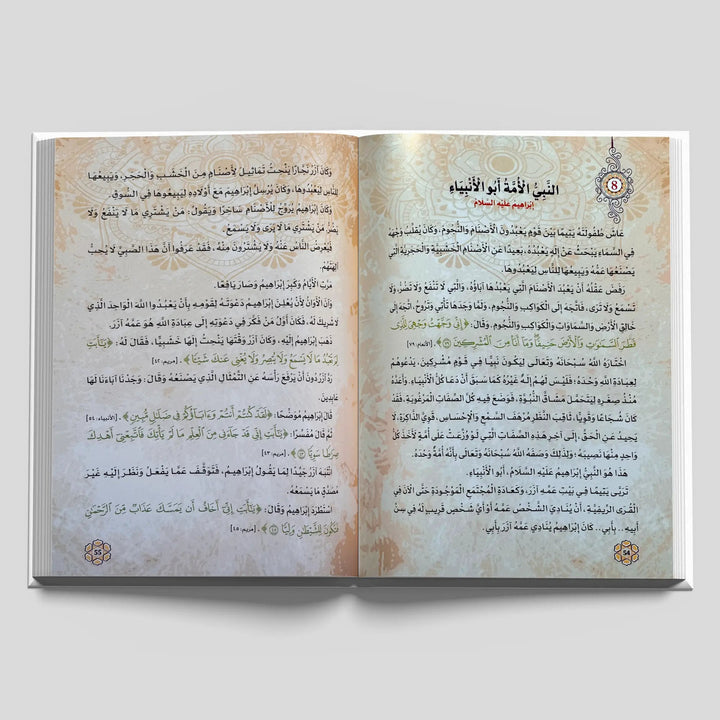 8
النَّبِيُّ الْأُمَّةُ أَبُو الْأَنْبِيَاءِ
إبْرَاهِيم عَلَيْهِ السَّلَامُ
عَاشَ طُفُولَتَهُ يَتِيمًا بَيْنَ قَوْمٍ يَعْبُدُونَ الْأَصْنَامَ وَالنُّجُومَ، وَكَانَ يُقَلِّبُ وَجْهَهُ
فِي السَّمَاءِ يَبْحَثُ عَنْ إِلَهٍ يَعْبُدُهُ، بَعِيدًا عَنِ الْأَصْنَامِ الْخَشَبِيَّةِ وَالْحَجَرِيَّةِ الَّتِي
يَصْنَعُهَا عَمُّهُ وَيَبِيعُهَا لِلنَّاسِ لِيَعْبُدُوهَا.
رَفَضَ عَقْلُهُ أَنْ يَعْبُدَ الْأَصْنَامَ وَالَّتِي يَعْبُدُهَا آبَاؤُهُ، وَالَّتِي لَا تَنْفَعُ وَلَا تَضُرُّ، وَلَا
تَسْمَعُ وَلَا تَرَى، فَاتَّجَهَ إِلَى الْكَوَاكِبِ وَالنُّجُومِ، وَلَمَّا وَجَدَهَا تَأْتِي وَتَرُوحُ، اتَّجَهَ إِلَى
خَالِقِ الْأَرْضِ وَالسَّمَاوَاتِ وَالْكَوَاكِبِ وَالنُّجُومِ، وَقَالَ: ﴿إِنِّي وَجَّهْتُ وَجْهِيَ لِلَّذِي
فَطَرَ السَّمَوَاتِ وَالْأَرْضَ حَنِيفًا وَمَا أَنَا مِنَ الْمُشْرِكِينَ ٧٩﴾. [الأنعام: ٧٩]
اخْتَارَهُ اللهُ سُبْحَانَهُ وَتَعَالَى لِيَكُونَ نَبِيًّا فِي قَوْمٍ مُشْرِكِينَ، يَدْعُوهُمْ
لِعِبَادَةِ اللهِ وَحْدَهُ؛ فَلَيْسَ لَهُمْ إِلَهٌ غَيْرُهُ كَمَا سَبَقَ أَنْ دَعَا كُلُّ الْأَنْبِيَاءِ، وَأَعَدَّهُ
مُنْذُ صِغَرِهِ لِيَتَحَمَّلَ مَشَاقَّ النُّبُوَّةِ، فَوَضَعَ فِيهِ كُلَّ الصِّفَاتِ الْمَرْغُوبَةِ، فَقَدْ
كَانَ شُجَاعًا وَقَوِيًّا، ثَاقِبَ النَّظَرِ مُرْهَفَ السَّمْعِ وَالْإِحْسَاسِ، قَوِيَّ الذَّاكِرَةِ، لَا
يَحِيدُ عَنِ الْحَقِّ، إِلَى آخِرِ هَذِهِ الصِّفَاتِ الَّتِي لَوْ وُزِّعَتْ عَلَى أُمَّةٍ لَأَخَذَ كُلُّ
وَاحِدٍ مِنْهَا نَصِيبَهُ، وَلِذَلِكَ وَصَفَهُ اللهُ سُبْحَانَهُ وَتَعَالَى بِأَنَّهُ أُمَّةٌ وَحْدَهُ.
هَذَا هُوَ النَّبِيُّ إِبْرَاهِيمُ عَلَيْهِ السَّلَامُ، أَبُو الْأَنْبِيَاءِ.
تَرَبَّى يَتِيمًا فِي بَيْتِ عَمِّهِ آزَرَ، وَكَعَادَةِ الْمُجْتَمَعِ الْمَوْجُودَةِ حَتَّى الْآنَ فِي
الْقُرَى الرِّيفِيَّةِ، أَنْ يُنَادِيَ الشَّخْصُ عَمَّهُ أَوْ أَيَّ شَخْصٍ قَرِيبٍ لَهُ فِي سِنِّ
أَبِيهِ .. بِأَبِي.. كَانَ إِبْرَاهِيمُ يُنَادِي عَمَّهُ آزَرَ بِأَبِي.
54
وَكَانَ آزَرُ نَجَّارًا يَنْحِتُ تَمَاثِيلَ لِأَصْنَامٍ مِنَ الْخَشَبِ وَالْحَجَرِ، وَيَبِيعُهَا
لِلنَّاسِ لِيَعْبُدُوهَا، وَكَانَ يُرْسِلُ إِبْرَاهِيمَ مَعَ أَوْلَادِهِ لِيَبِيعُوهَا فِي السُّوقِ.
وَكَانَ إِبْرَاهِيمُ يُرَوِّجُ لِلْأَصْنَامِ سَاخِرًا وَيَقُولُ: مَنْ يَشْتَرِي مَا لَا يَنْفَعُ وَلَا
يَضُرُّ، مَنْ يَشْتَرِي مَا لَا يَرَى وَلَا يَسْمَعُ.
فَيَعْرِضُ النَّاسُ عَنْهُ وَلَا يَشْتَرُونَ مِنْهُ، فَقَدْ عَرَفُوا أَنَّ هَذَا الصَّبِيَّ لَا يُحِبُّ
آلِهَتَهُمْ.
مَرَّتِ الْأَيَّامُ وَكَبِرَ إِبْرَاهِيمُ وَصَارَ يَافِعًا.
وَآنَ الْأَوَانُ لِأَنْ يُعْلِنَ إِبْرَاهِيمُ دَعْوَتَهُ لِقَوْمِهِ بِأَنْ يَعْبُدُوا اللهَ الْوَاحِدَ الَّذِي
لَا شَرِيكَ لَهُ، فَكَانَ أَوَّلُ مَنْ فَكَّرَ فِي دَعْوَتِهِ إِلَى عِبَادَةِ اللهِ هُوَ عَمُّهُ آزَرُ.
ذَهَبَ إِبْرَاهِيمُ إِلَيْهِ، وَكَانَ آزَرُ وَقْتَهَا يَنْحِتُ إِلَهًا خَشَبِيًّا، فَقَالَ لَهُ: ﴿يَا أَبَتِ
لِمَ تَعْبُدُ مَا لَا يَسْمَعُ وَلَا يُبْصِرُ وَلَا يُغْنِي عَنكَ شَيْئًا﴾. [مريم: ٤٢]
رَدَّ آزَرُ دُونَ أَنْ يَرْفَعَ رَأْسَهُ عَنِ التِّمْثَالِ الَّذِي يَصْنَعُهُ وَقَالَ: وَجَدْنَا آبَاءَنَا لَهَا
عَابِدِينَ.
قَالَ إِبْرَاهِيمُ مُوَضِّحًا: ﴿لَقَدْ كُنتُمْ أَنتُمْ وَءَابَاؤُكُمْ فِي ضَلَالٍ مُّبِينٍ﴾. [الأنبياء: ٥٤]
ثُمَّ قَالَ مُفَسِّرًا: ﴿يَا أَبَتِ إِنِّي قَدْ جَاءَنِي مِنَ الْعِلْمِ مَا لَمْ يَأْتِكَ فَاتَّبِعْنِي أَهْدِكَ
صِرَاطًا سَوِيًّا ٤٣﴾. [مريم: ٤٣]
انْتَبَهَ آزَرُ جَيِّدًا لِمَا يَقُولُ إِبْرَاهِيمُ، فَتَوَقَّفَ عَمَّا يَفْعَلُ وَنَظَرَ إِلَيْهِ غَيْرَ
مُصَدِّقٍ مَا يَسْمَعُهُ.
اسْتَطْرَدَ إِبْرَاهِيمُ وَقَالَ: ﴿يَا أَبَتِ إِنِّي أَخَافُ أَن يَمَسَّكَ عَذَابٌ مِّنَ الرَّحْمَنِ
فَتَكُونَ لِلشَّيْطَانِ وَلِيًّا ٤٥﴾. [مريم: ٤٥]
55